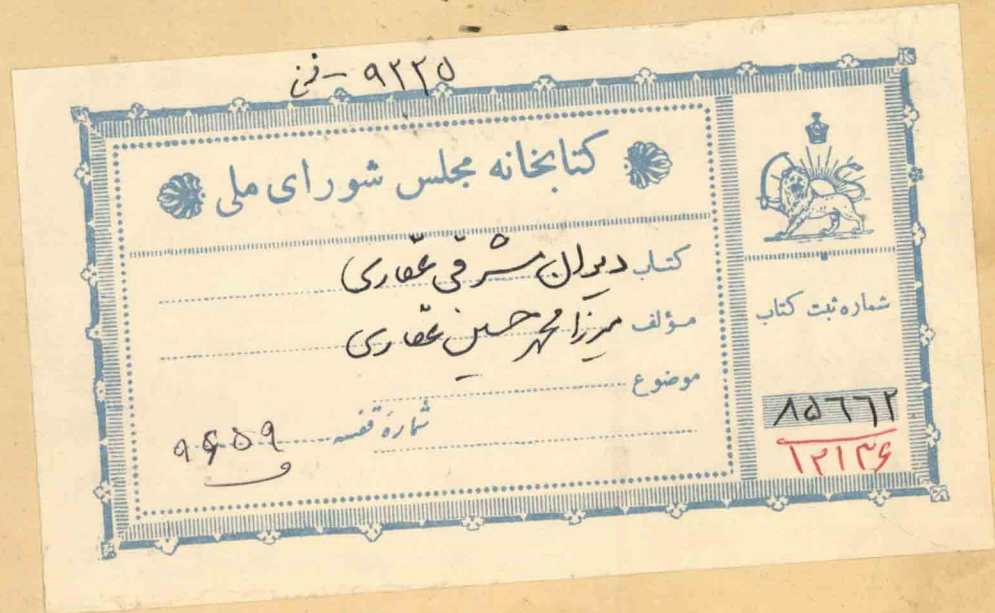 ۹۲۲۵ - فن
کتابخانه مجلس شورای ملی
کتاب دیوان مشرقی غفاری
مؤلف میرزا محمد حسین غفاری
موضوع
شماره قفسه ۹۶۵۹
شماره ثبت کتاب
۸۵۶۶۲
۱۲۱۳۶